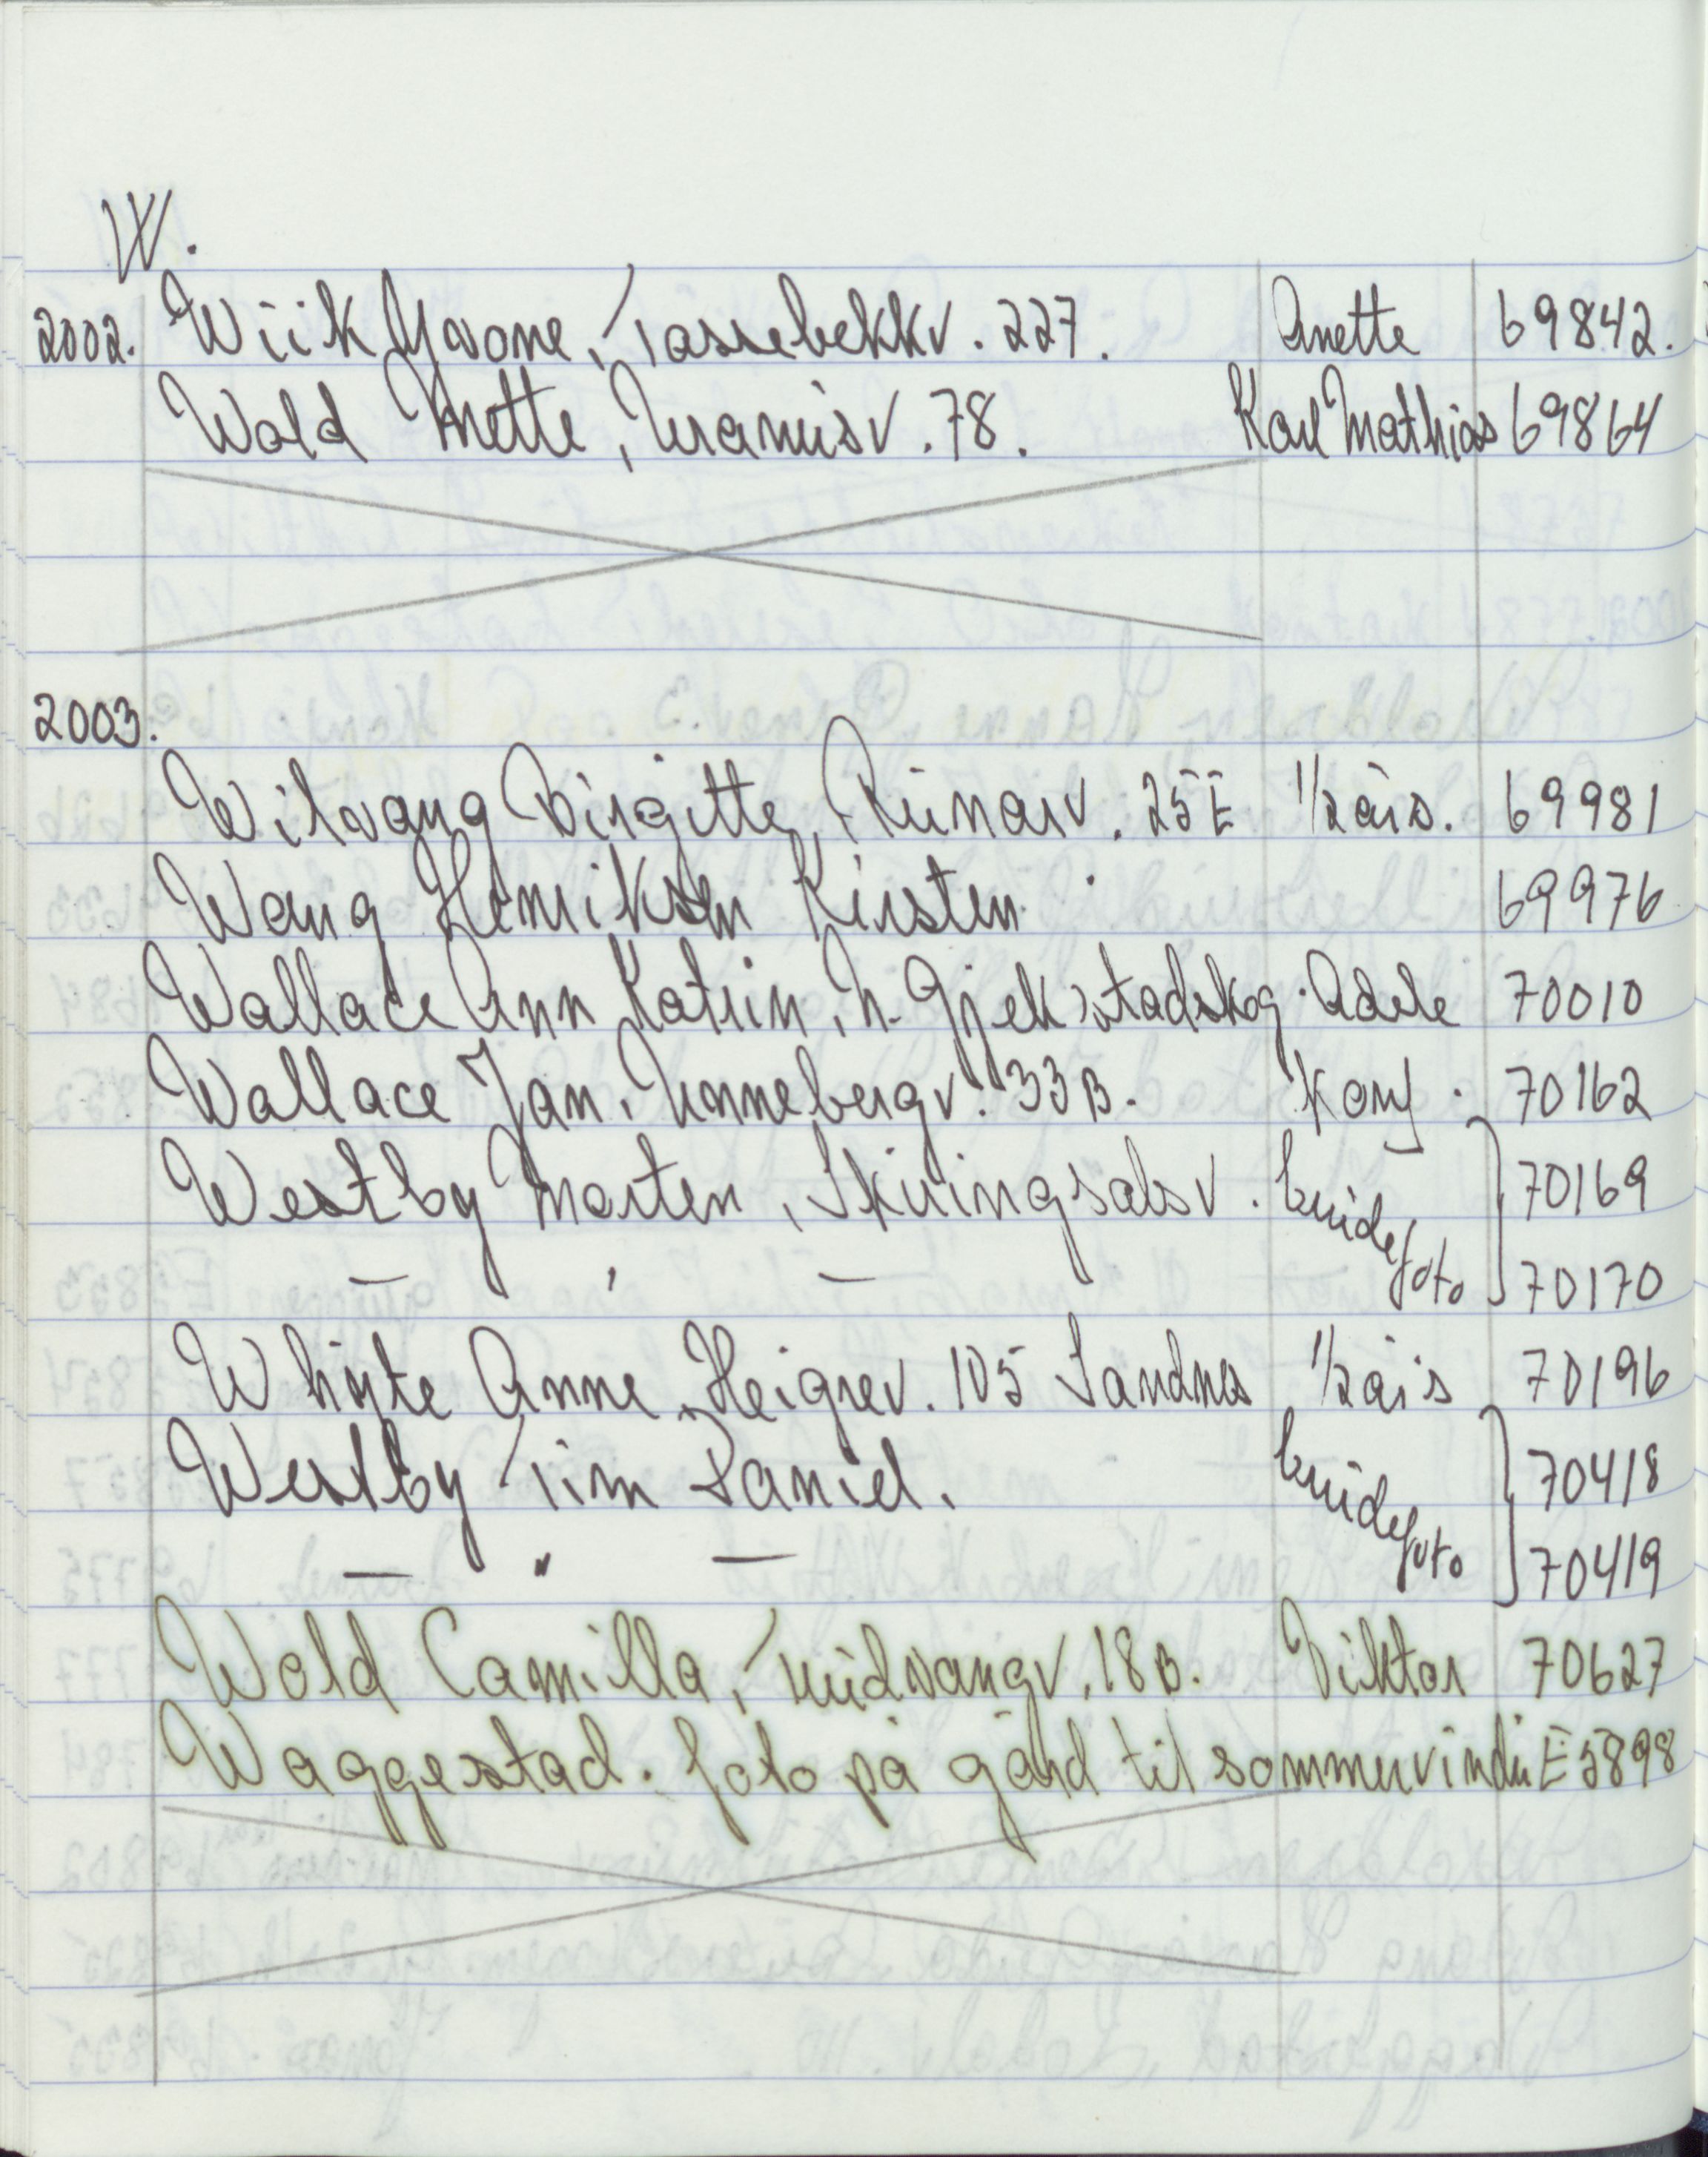 W.
2002. Wiik Yvonne, Tassebekkv. 227. Anette 69842.
Wold Mette, Uranusv. 78. Karl Mathias 69864
2003.
Wilvang Birgitte, Runarv. 25E 1/2 års. 69981
Wang Henriksen Kirsten 69976
Wallace Ann Katrin, N. Gjekstadskog. Adele 70010
Wallace Jan, Unnebergv. 33B. Konf. 70162
Westby Morten, Skiringsalsv. brudefoto 70169
— , — 70170
Whyte Anne, Heigrev. 105 Sandnes 1/2 års 70196
Westby Tim Daniel. brudefoto 70418
— " — 70419
Wold Camilla, Midvangv. 18B. Viktor 70627
Waggestad. foto på gård til sommervindu E5898